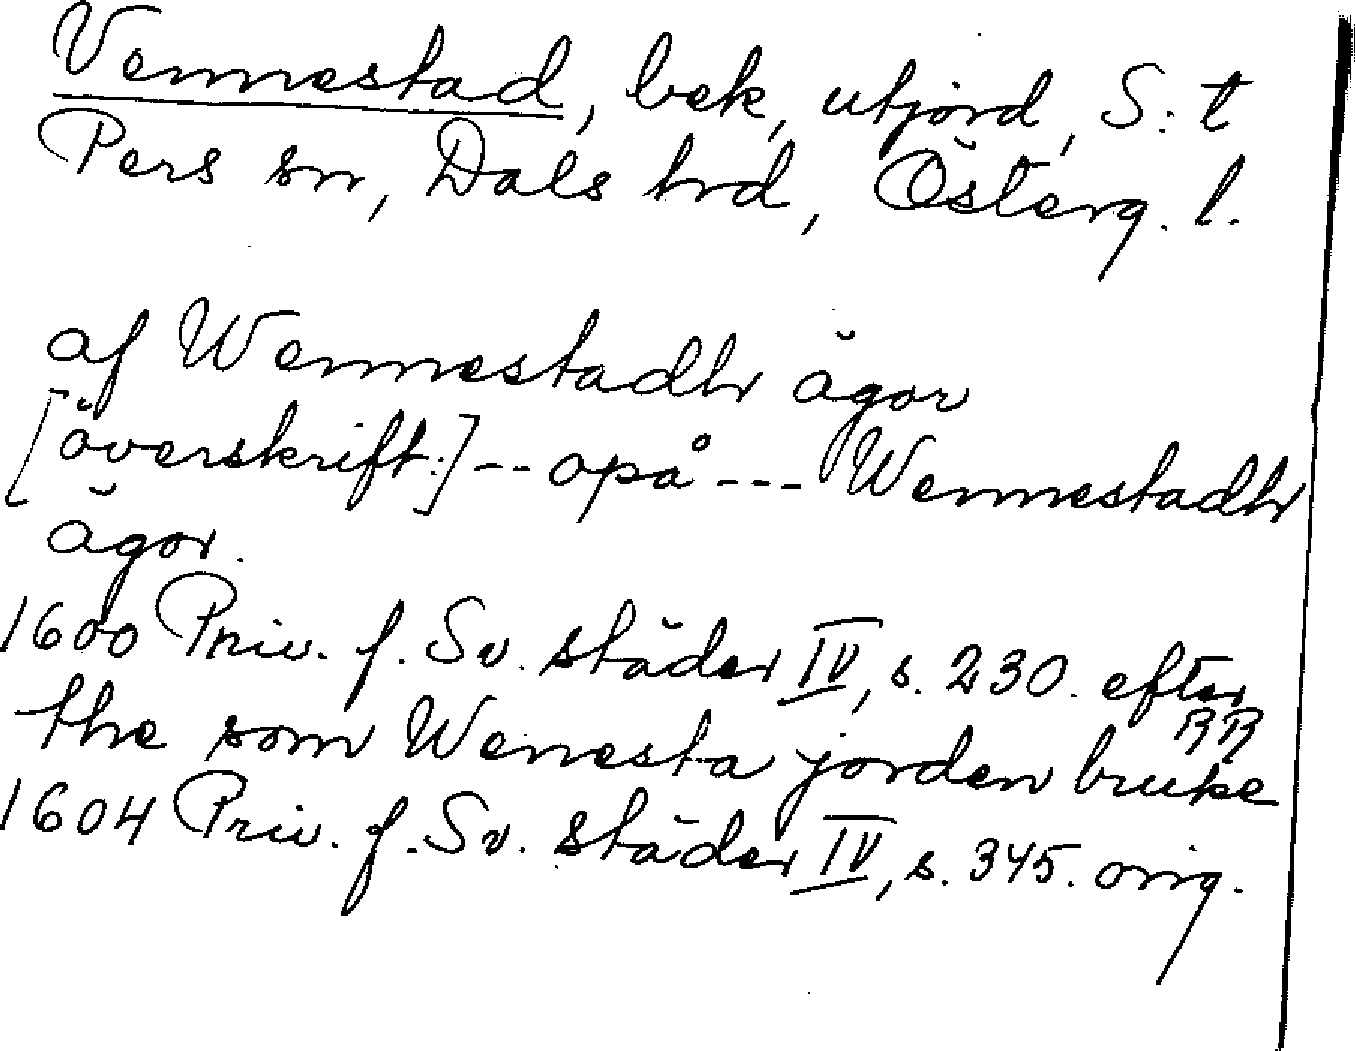 Vennestad, bek, utjord, S:t
Pers sn, Dals hd, Österg. l.
af Wennestadh ägor
[överskrift:] -- opå --- Wennestadh
ägor.
1600 Priv. f. Sv. städer IV, s. 230. efter
RR
the som Wenesta jorden bruke
1604 Priv. f. Sv. städer IV, s. 345. orig.